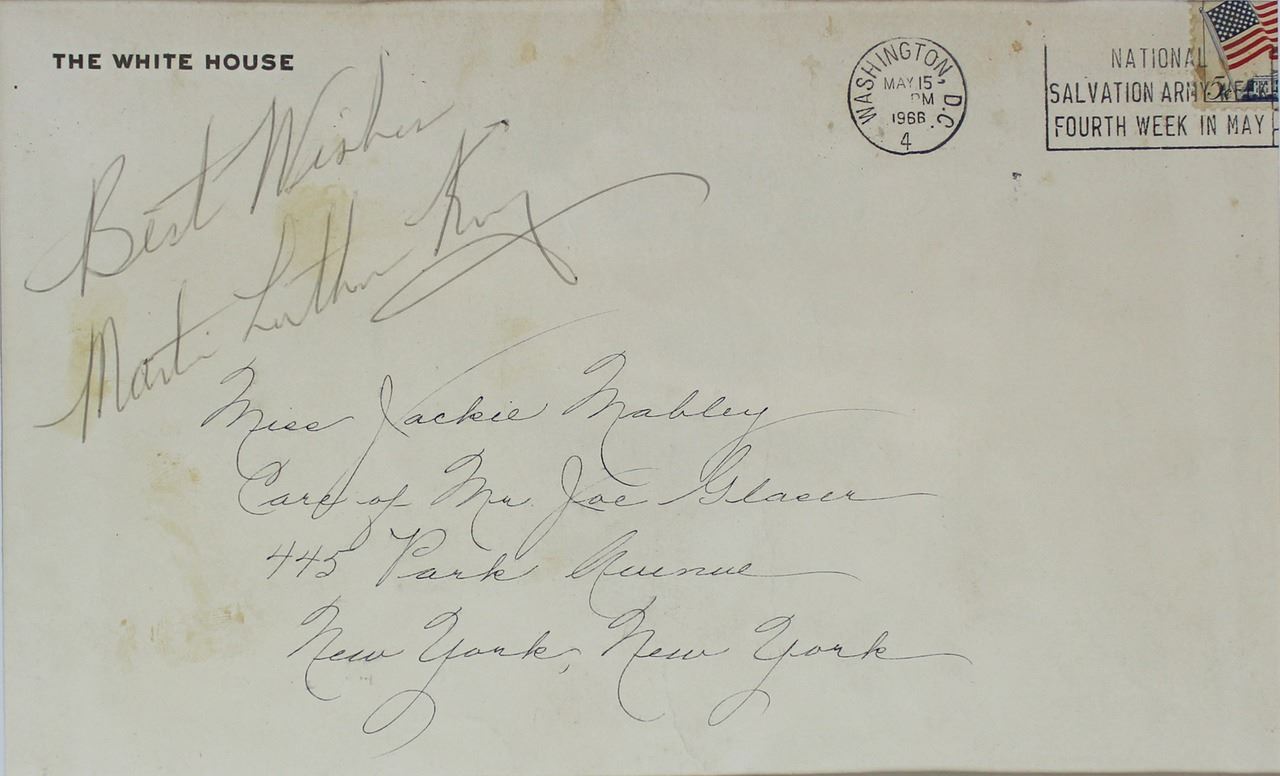 THE WHITE HOUSE
WASHINGTON, D.C.
MAY 15
PM
1966
4
NATIONAL
SALVATION ARMY WEEK
FOURTH WEEK IN MAY
5¢
Best Wishes
Martin Luther King
Miss Jackie Mabley
Care of Mr. Joe Glaser
445 Park Avenue
New York, New York